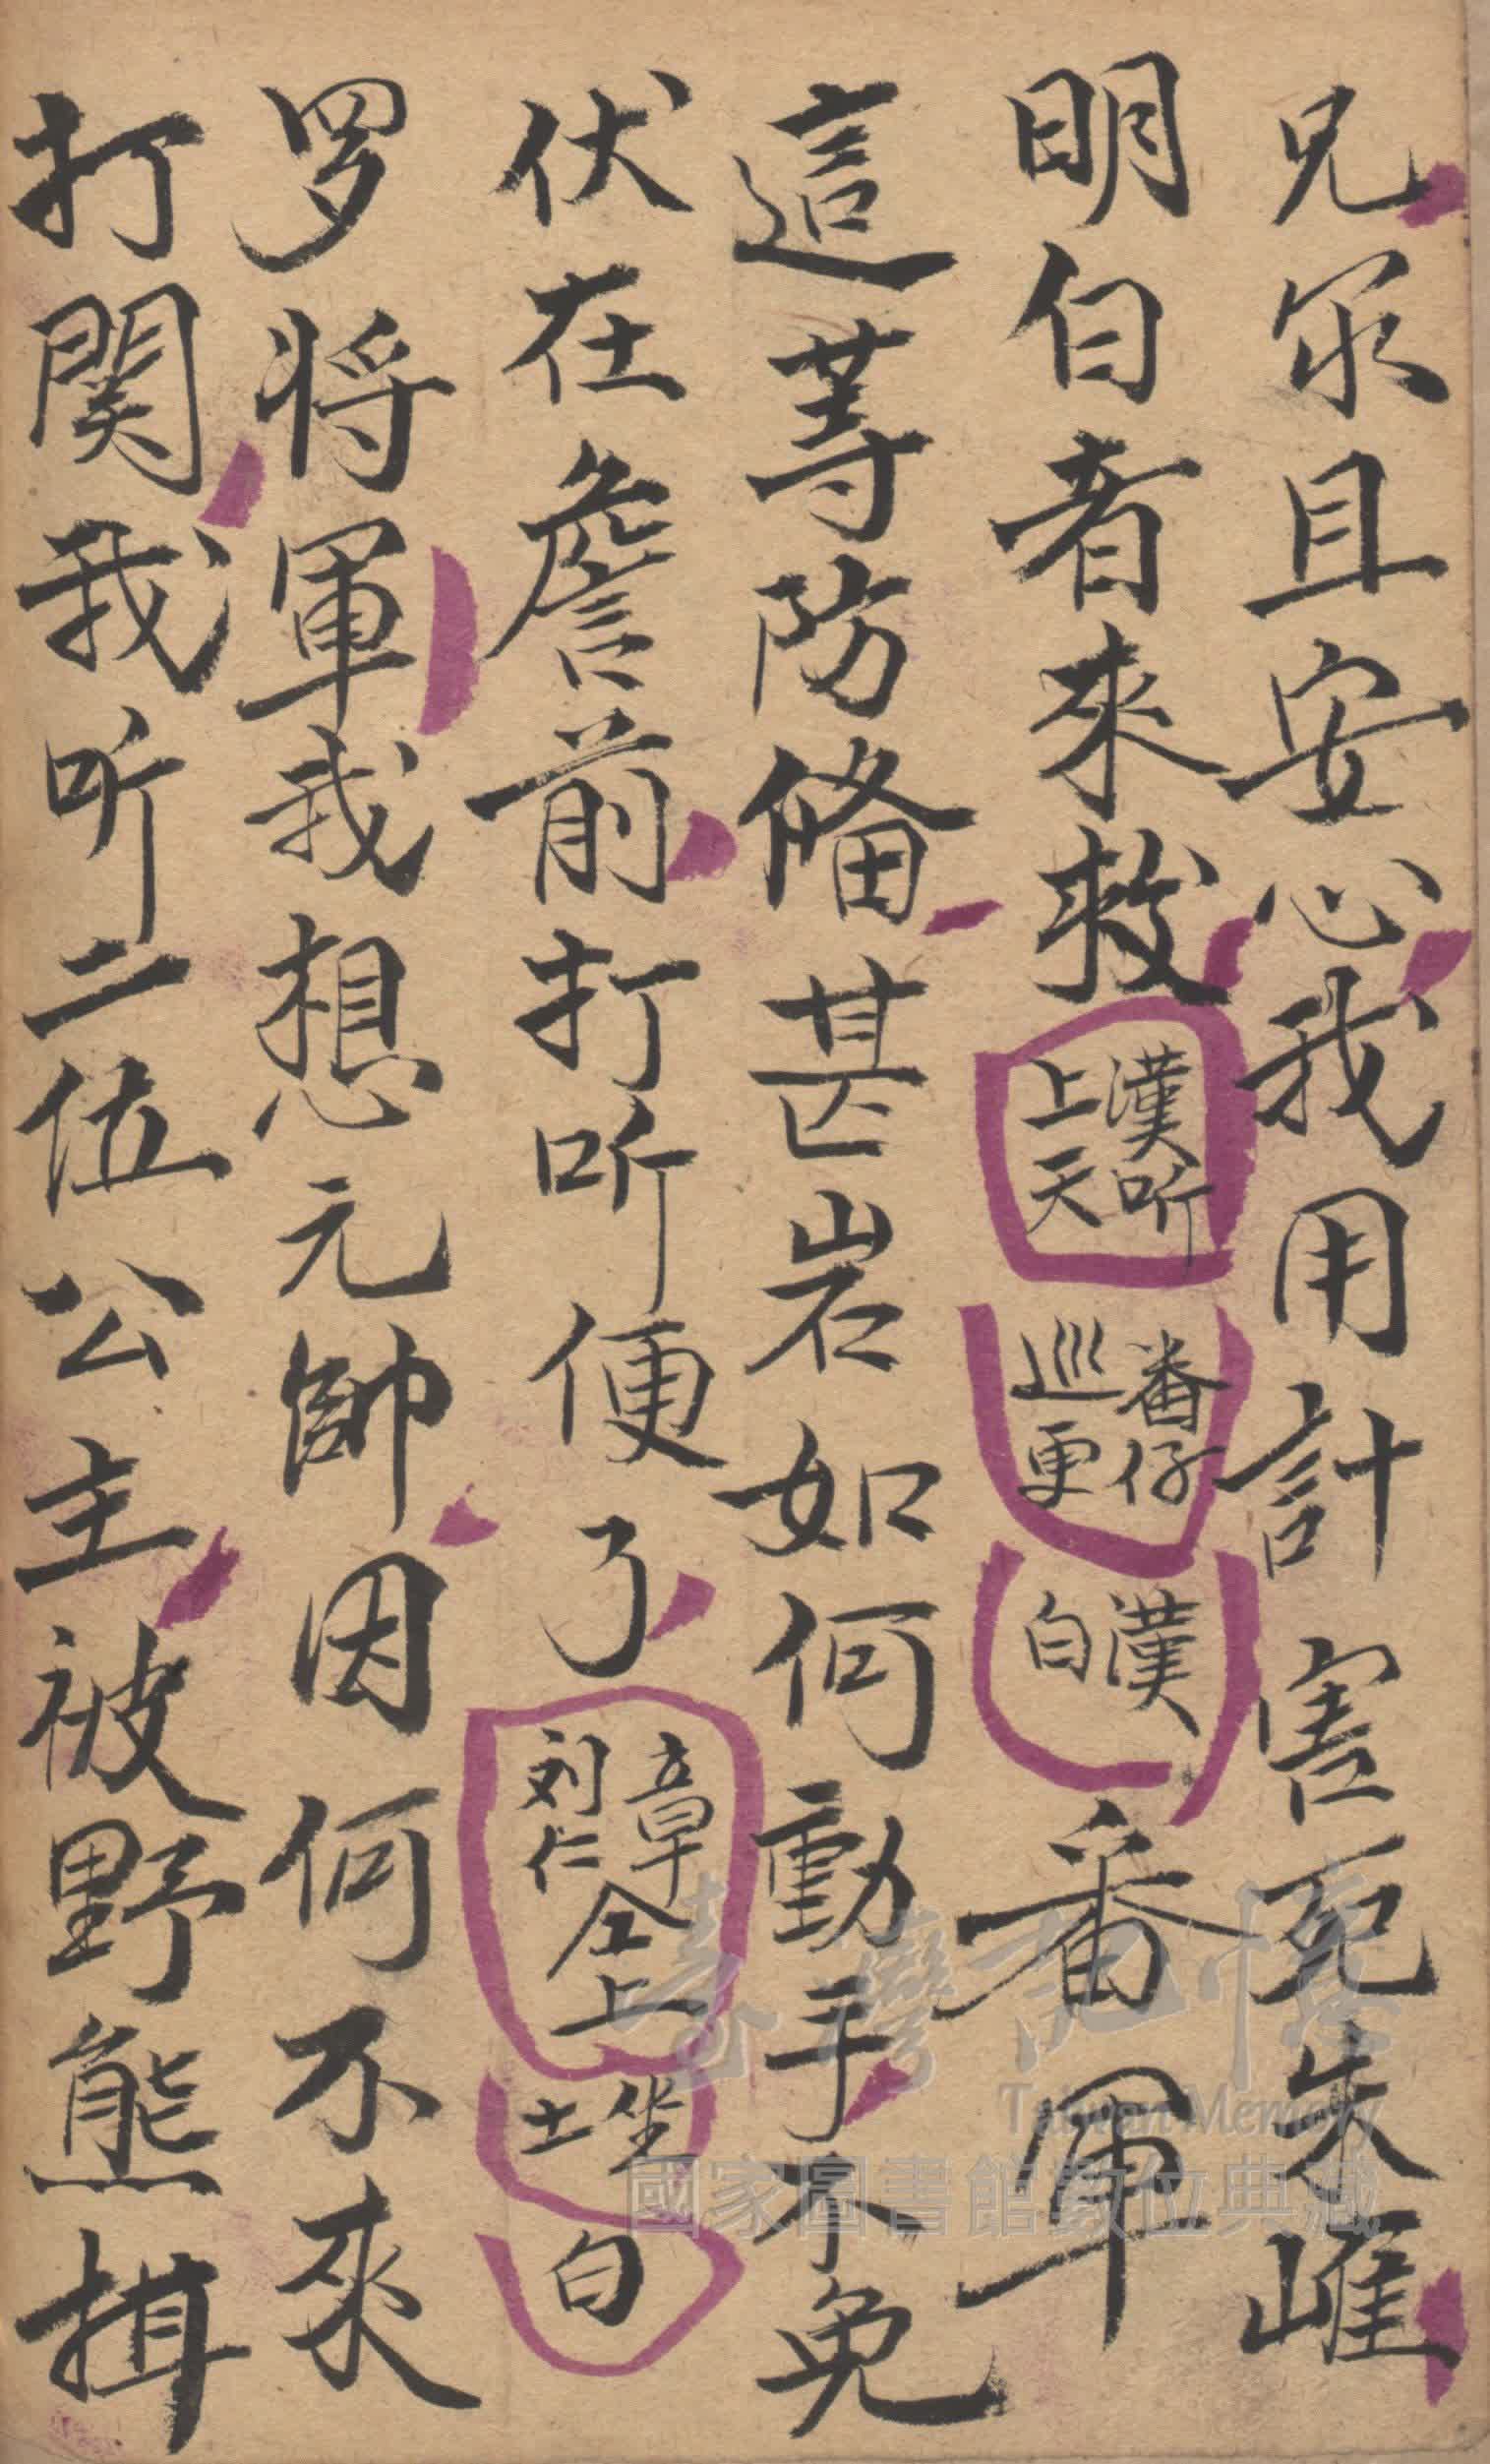 兄弟且安心我用計害死朱崖
明白者來救漢听上天番仔巡更漢白番軍
這等防俻甚岩如何動手不免
伏在詹前打听便了章刘仁仝上坐士白
罗将軍我想元帥因何不來
打関我听二位公主被野熊揖
臺灣記憶
Taiwan Memory
國家圖書館數位典藏